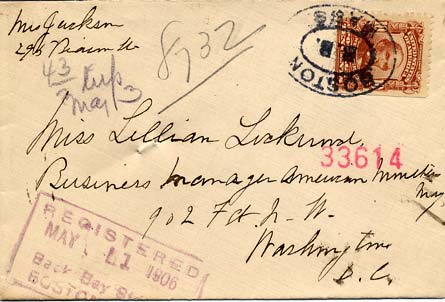 Mrs Jackson
296
8732
43
May 3
BOSTON
MASS.
Miss Lillian Lockwood
33614
Business Manager American
902 F St N. W.
Washington
D. C.
REGISTERED
MAY 11 1906
Back Bay Sta
BOSTON